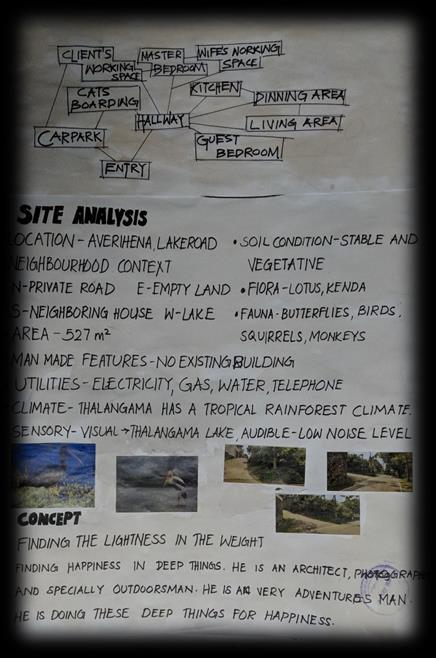 CLIENT'S
WORKING
SPACE
MASTER
BEDROOM
WIFE'S WORKING
SPACE
KITCHEN
CATS
BOARDING
DINNING AREA
HALLWAY
LIVING AREA
CARPARK
GUEST
BEDROOM
ENTRY
SITE ANALYSIS
LOCATION - AVERIHENA, LAKEROAD
NEIGHBOURHOOD CONTEXT
N-PRIVATE ROAD E-EMPTY LAND
S-NEIGHBORING HOUSE W-LAKE
AREA - 527 m²
• SOIL CONDITION-STABLE AND
VEGETATIVE
• FLORA-LOTUS, KENDA
• FAUNA-BUTTERFLIES, BIRDS,
SQUIRRELS, MONKEYS
MAN MADE FEATURES-NO EXISTING BUILDING
UTILITIES- ELECTRICITY, GAS, WATER, TELEPHONE
CLIMATE- THALANGAMA HAS A TROPICAL RAINFOREST CLIMATE.
SENSORY- VISUAL → THALANGAMA LAKE, AUDIBLE-LOW NOISE LEVEL
CONCEPT
FINDING THE LIGHTNESS IN THE WEIGHT
FINDING HAPPINESS IN DEEP THINGS. HE IS AN ARCHITECT,
AND SPECIALLY OUTDOORSMAN. HE IS AN VERY ADVENTURES MAN.
HE IS DOING THESE DEEP THINGS FOR HAPPINESS.